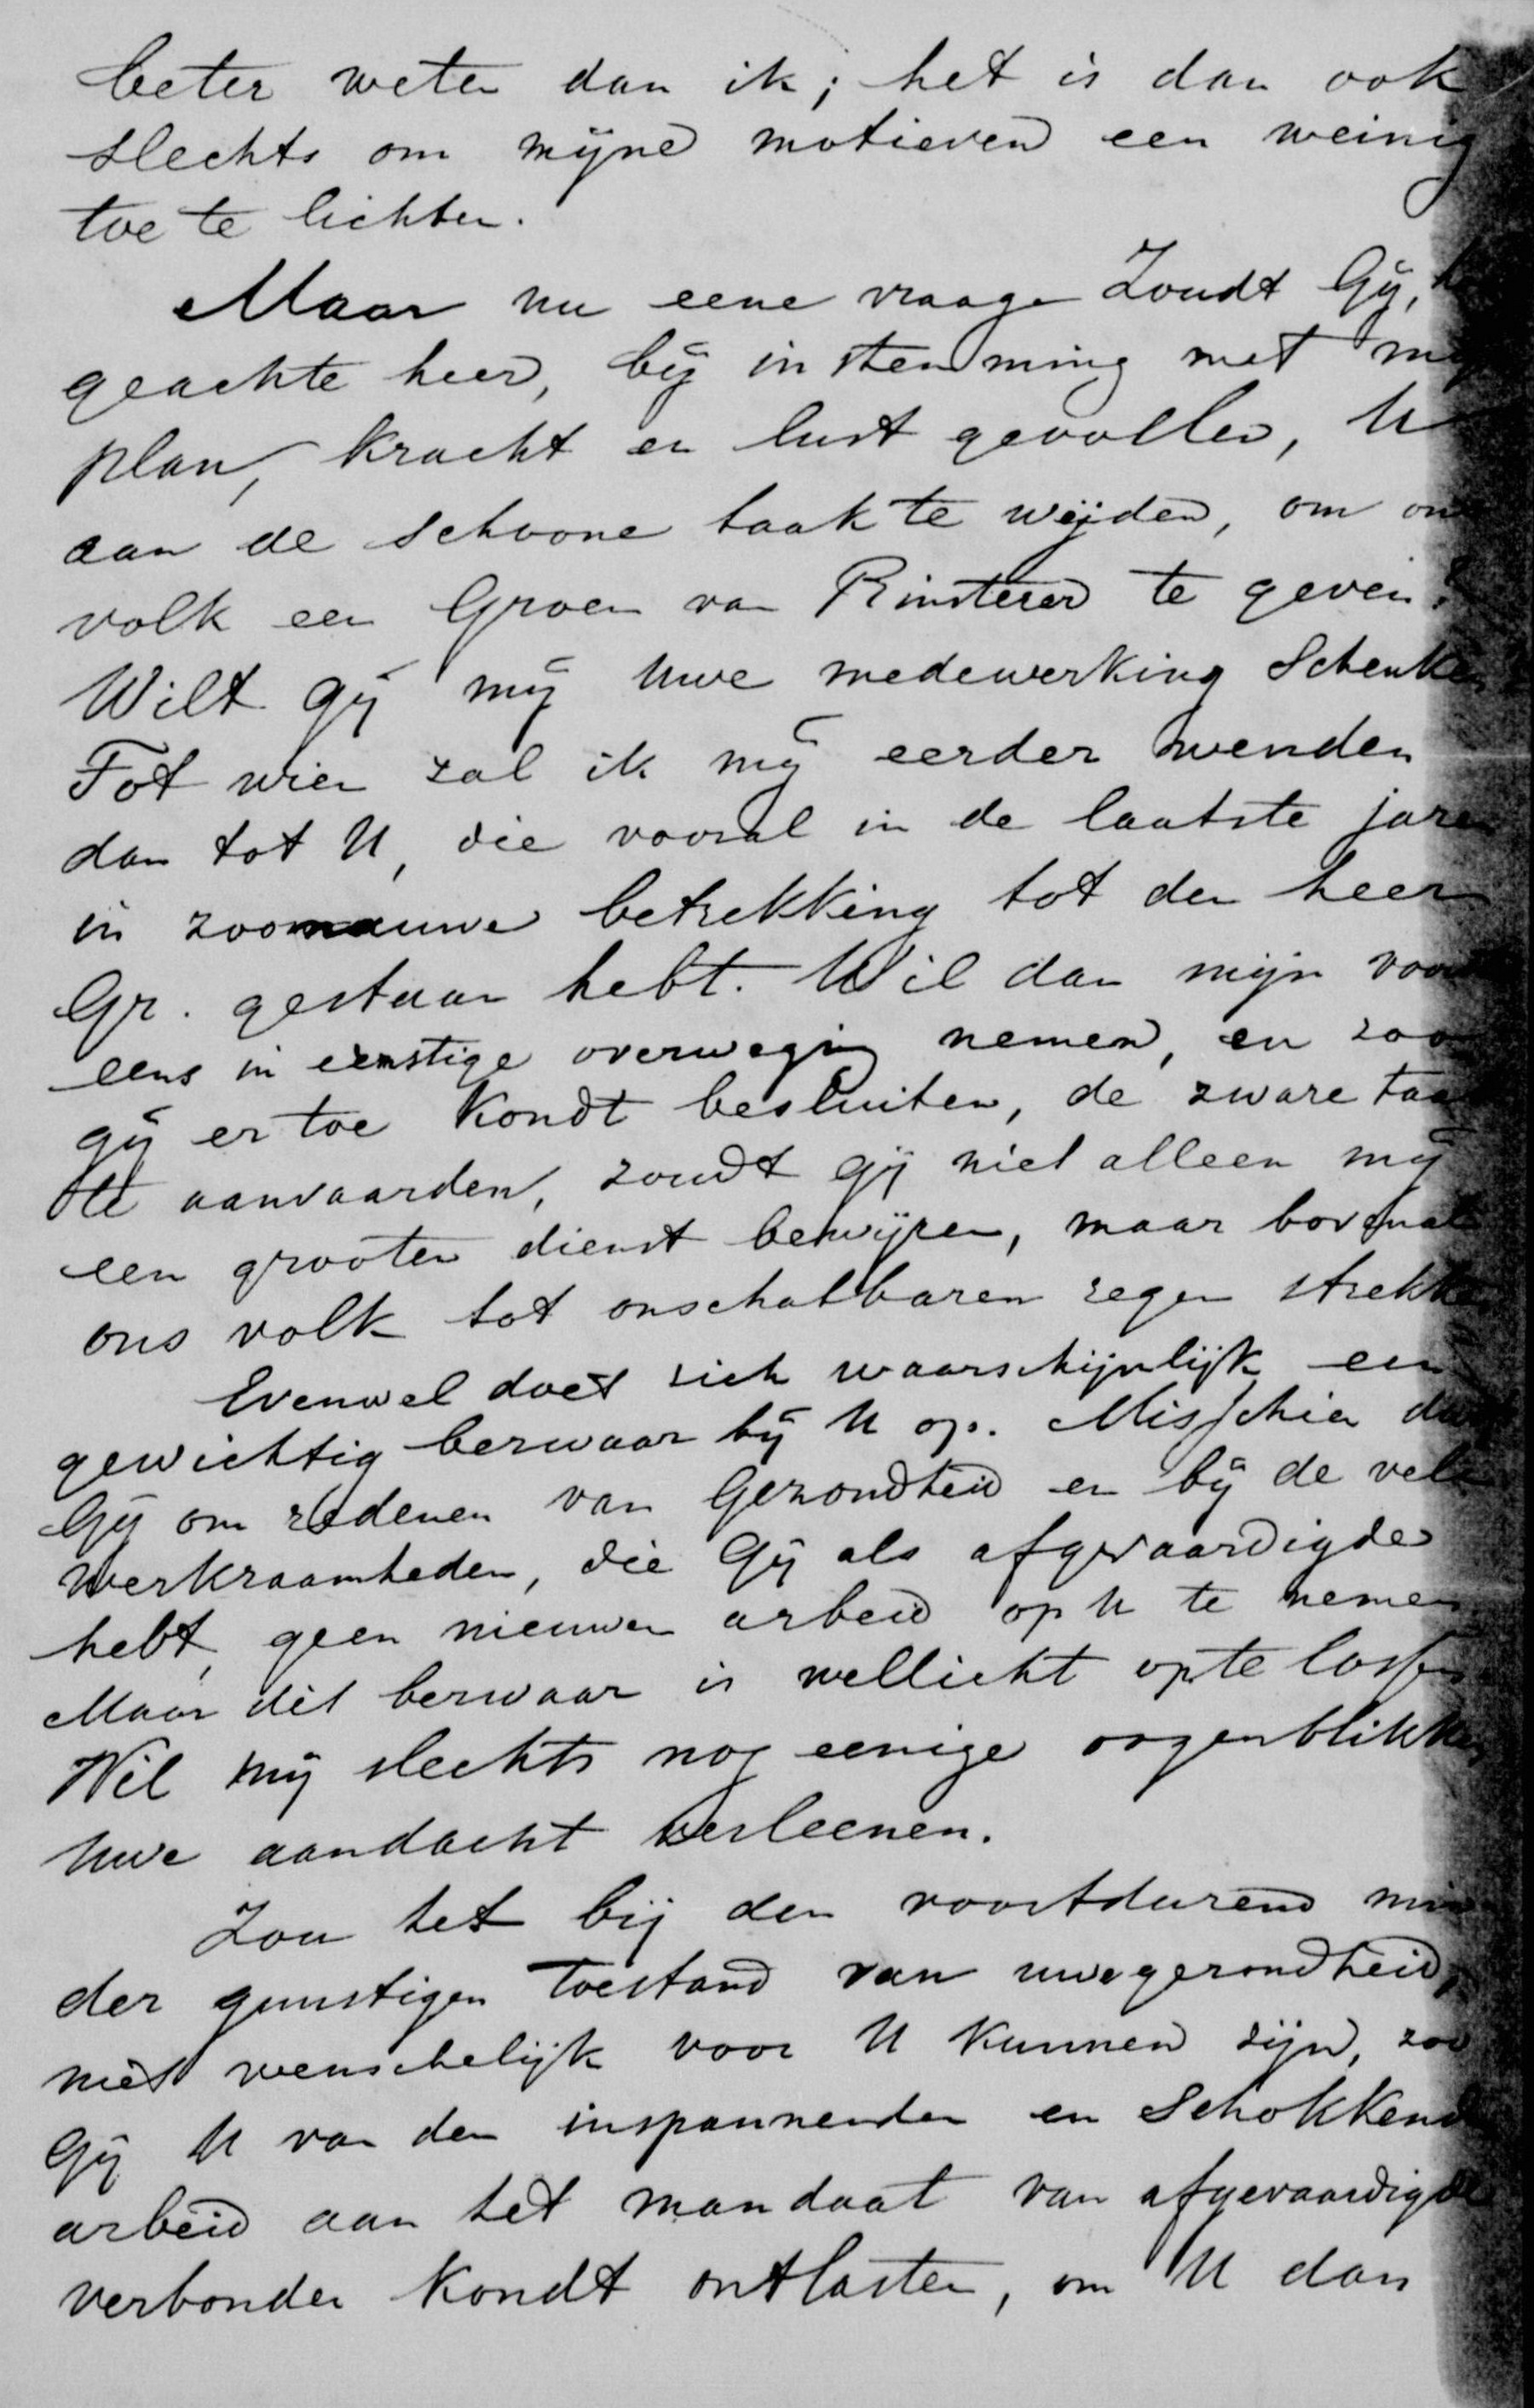 beter weten dan ik; het is dan ook
slechts om mijne motieven een weinig
toe te lichten.
Maar nu eene vraag. Zoudt Gij,
geachte heer, bij instemming met mijn
plan, kracht en lust gevoelen, U
aan de schoone taak te wijden, om ons
volk een Groen van Prinsterer te geven?
Wilt gij mij Uwe medewerking schenken
Tot wien zal ik mij eerder wenden
dan tot U, die vooral in de laatste jaren
in zoo nauwe betrekking tot den heer
Gr. gestaan hebt. Wil dan mijn
eens in ernstige overweging nemen, en zoo
gij er toe kondt besluiten, de zware taak
te aanvaarden, zoudt gij niet alleen mij
een grooten dienst bewijzen, maar bovenal
ons volk tot onschatbaren zegen strekken
Evenwel doet zich waarschijnlijk een
gewichtig bezwaar bij U op. Misschien
Gij om redenen van Gezondheid en bij de vele
werkzaamheden, die Gij als afgevaardigde
hebt, geen nieuwen arbeid op U te nemen
Maar dit bezwaar is wellicht op te lossen
Wil mij slechts nog eenige oogenblikken
Uwe aandacht verleenen.
Zou het bij den voortdurend min
der gunstigen toestand van uwe gezondheid,
niet wenschelijk voor U kunnen zijn, zoo
Gij U van den inspannenden en schokkenden
arbeid aan het mandaat van afgevaardigde
verbonden kondt ontlasten, om U dan